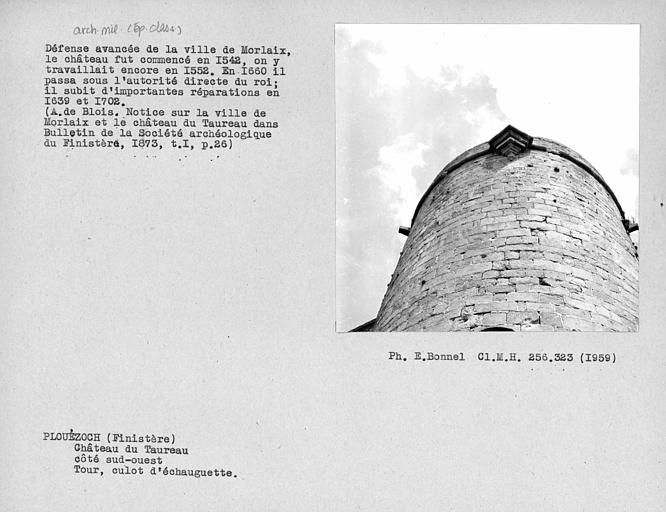 arch. mil. (Ep. class)
Défense avancée de la ville de Morlaix,
le château fut commencé en I542, on y
travaillait encore en I552. En I660 il
passa sous l'autorité directe du roi;
il subit d'importantes réparations en
I639 et I702.
(A.de Blois. Notice sur la ville de
Morlaix et le château du Taureau dans
Bulletin de la Société archéologique
du Finistère, I873, t.I, p.26)
Ph. E.Bonnel Cl.M.H. 256.323 (I959)
PLOUÉZOCH (Finistère)
Château du Taureau
côté sud-ouest
Tour, culot d'échauguette.